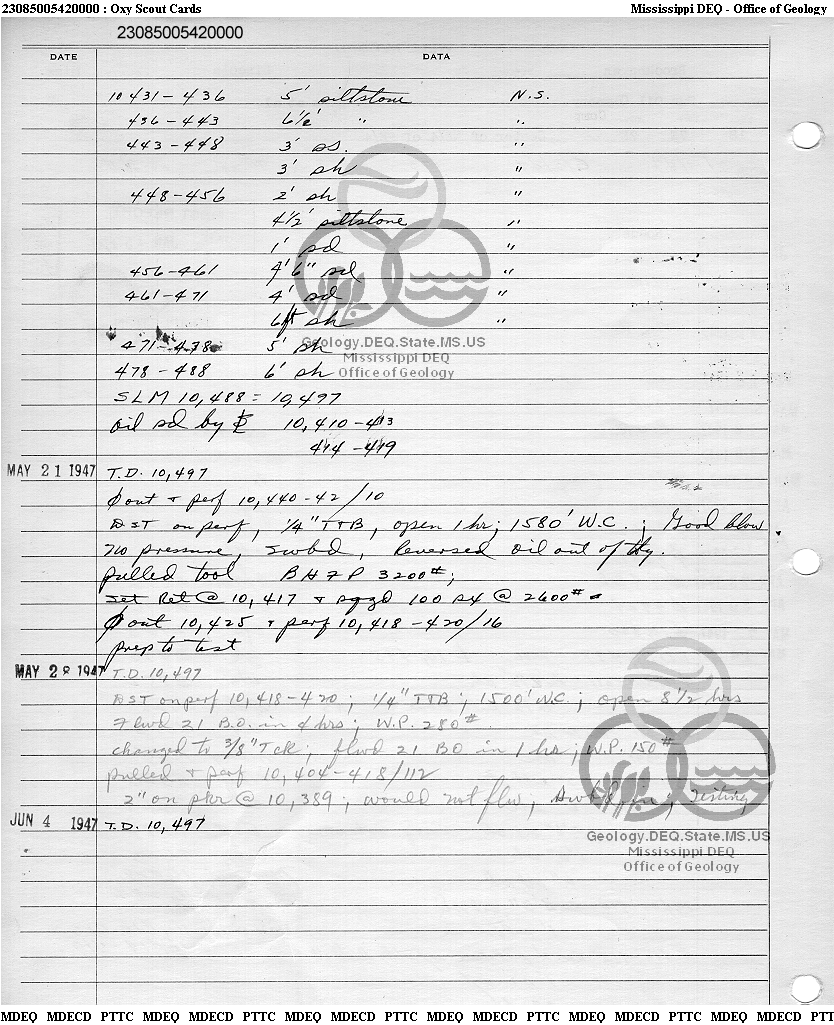 23085005420000 : Oxy Scout Cards Mississippi DEQ - Office of Geology
23085005420000
DATE DATA
10 431 - 436 5' siltstone N.S.
436 - 443 6½' " "
443 - 448 3' ss. "
3' sh "
448 - 456 2' sh "
4½' siltstone "
1' sd "
456 - 461 4' 6" sd "
461 - 471 4' sd "
6ft sh "
Geology.DEQ.State.MS.US
471 - 5' sh
Mississippi DEQ
478 - 488 6' sh
Office of Geology
SLM 10,488 = 10,497
oil sd by 10,410 - 413
414 - 419
MAY 21 1947 T.D. 10,497
out + perf 10,440-42/10
DST on perf, ¼" TTB, open 1 hr; 1580' W.C.; Good blow
no pressure, swbd, Reversed oil out of
pulled tool BHFP 3200#;
Set Ret @ 10,417 + sqzd 100 sx @ 2600#
out 10,425 + perf 10,418-420/16
prep to test
MAY 28 1947 T.D. 10,497
DST on perf 10,418-420; ¼" TTB; 1500' W.C.; open 8½ hrs
Flwd 21 B.O. in 4 hrs; W.P. 280#
changed to 3/8" Tck; flwd 21 BO in 1 hr; W.P. 150#
pulled + perf 10,404-418/112
2" on pkr @ 10,389; would not flw, Testing
JUN 4 1947 T.D. 10,497
Geology.DEQ.State.MS.US
Mississippi DEQ
Office of Geology
MDEQ MDECD PTTC MDEQ MDECD PTTC MDEQ MDECD PTTC MDEQ MDECD PTTC MDEQ MDECD PTTC MDEQ MDECD PTT